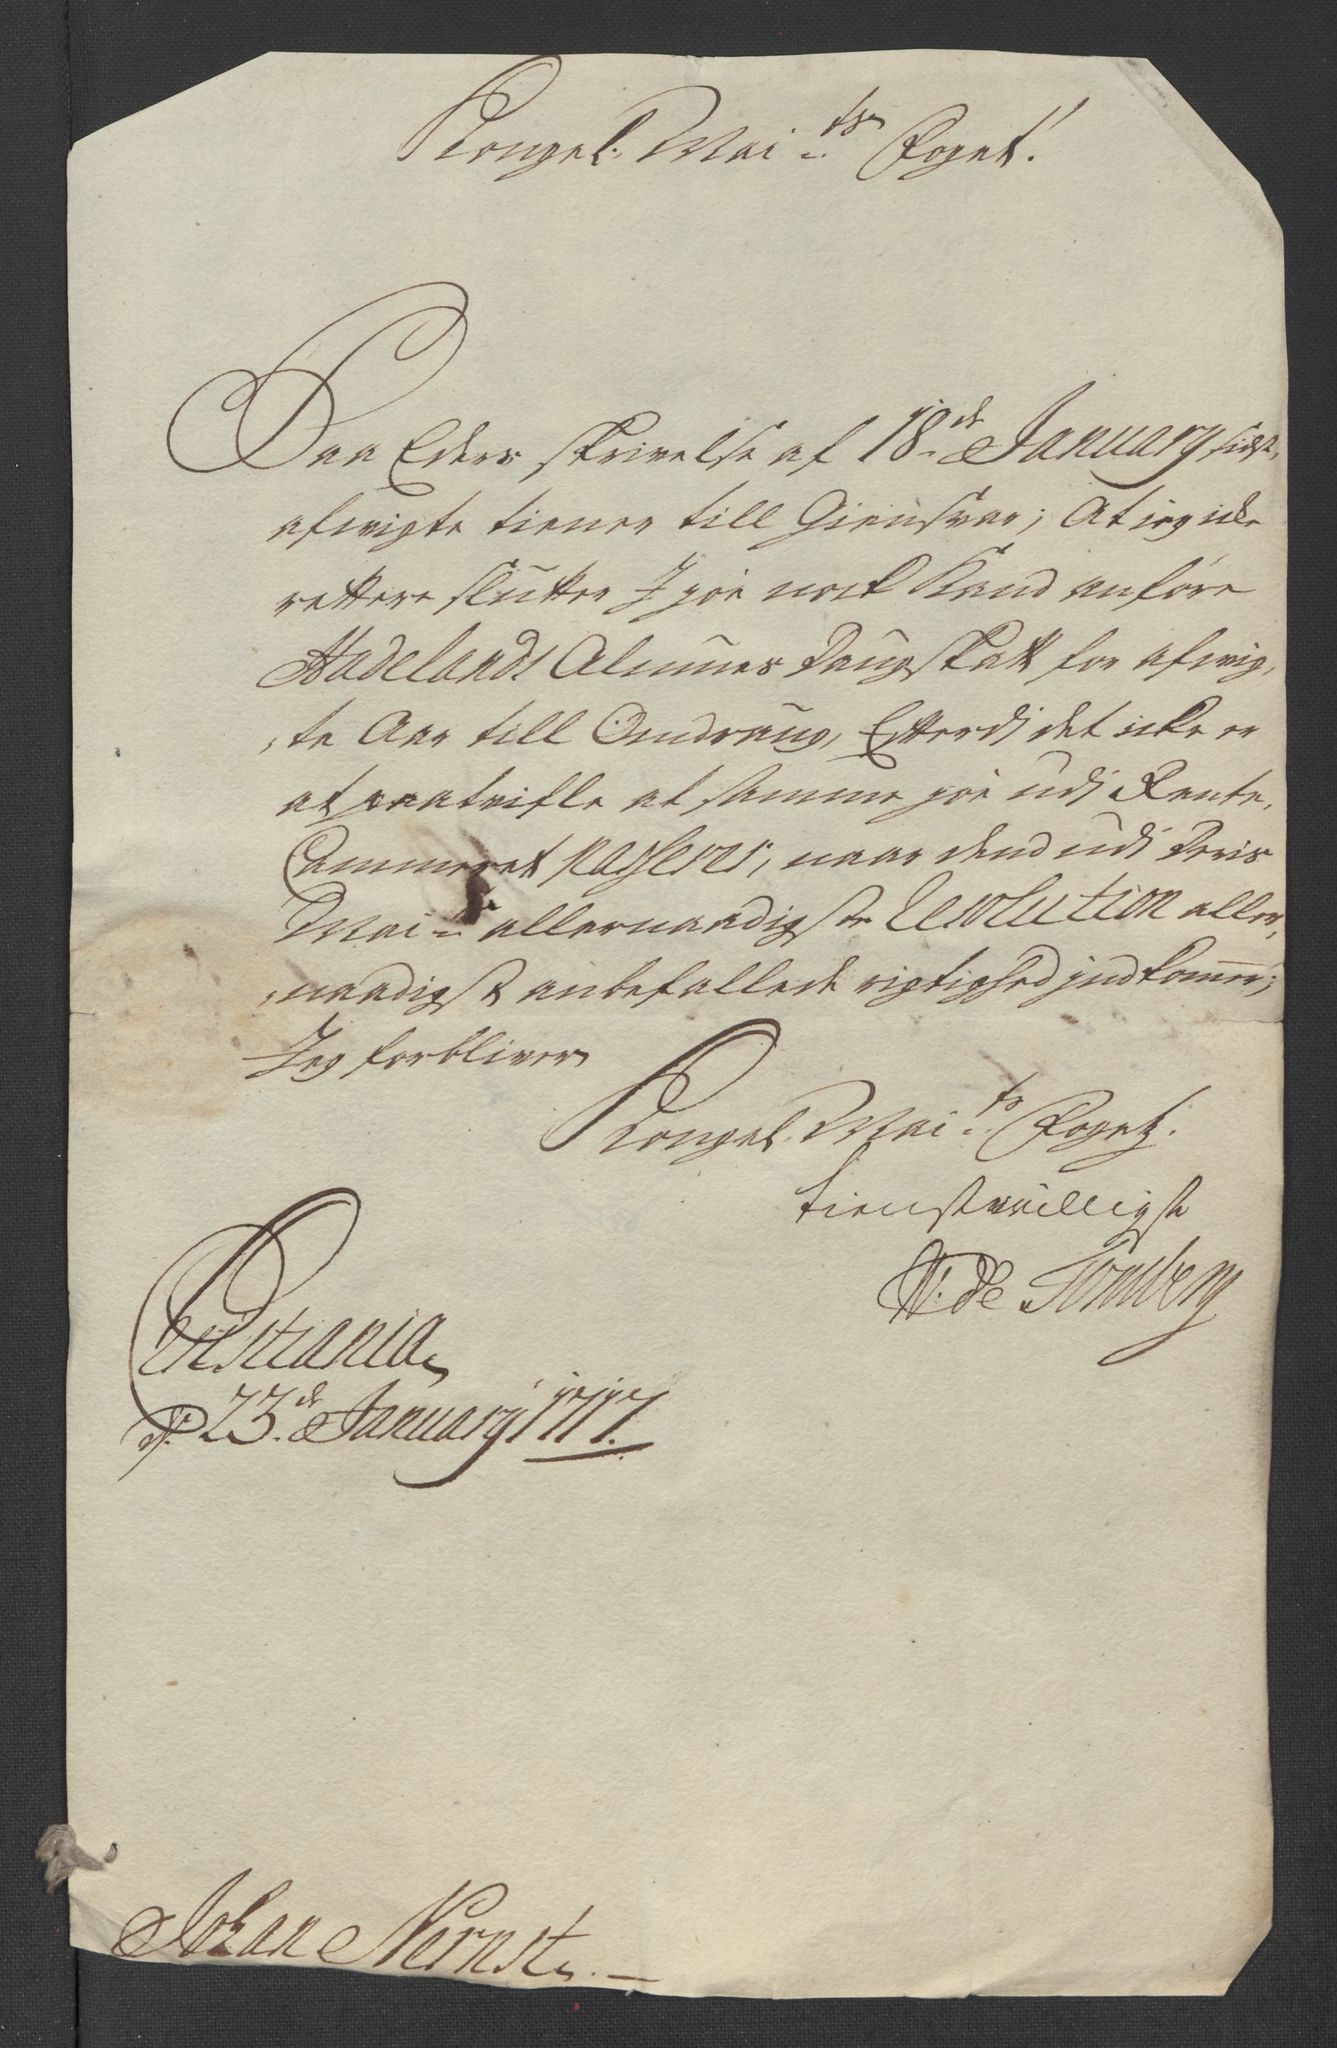 Kongel: Mai.ts Foget!
Paa Eders skrivelse af 18de January sidst
afvigte tiener till Giensvar; At jeg icke
rettere slutter I jo nock Kand anføre
Hadelands Almues Dagskatt for afvig,
,te Aar till Omdrag, Efterdj det icke er
at paatvifle at samme jo udj Rente,
Cammeret passerer, naar dend udj Deris
Mai.ts allernaadigste Resolution aller,
,naadigst anbefallede rigtighed indkommer;
Jeg forbliver
Kongel. Mai.ts Fogetz.
tienstvilligste
N: de Tonsberg
Christiania
d: 23de January 1717.
Johan Nernst